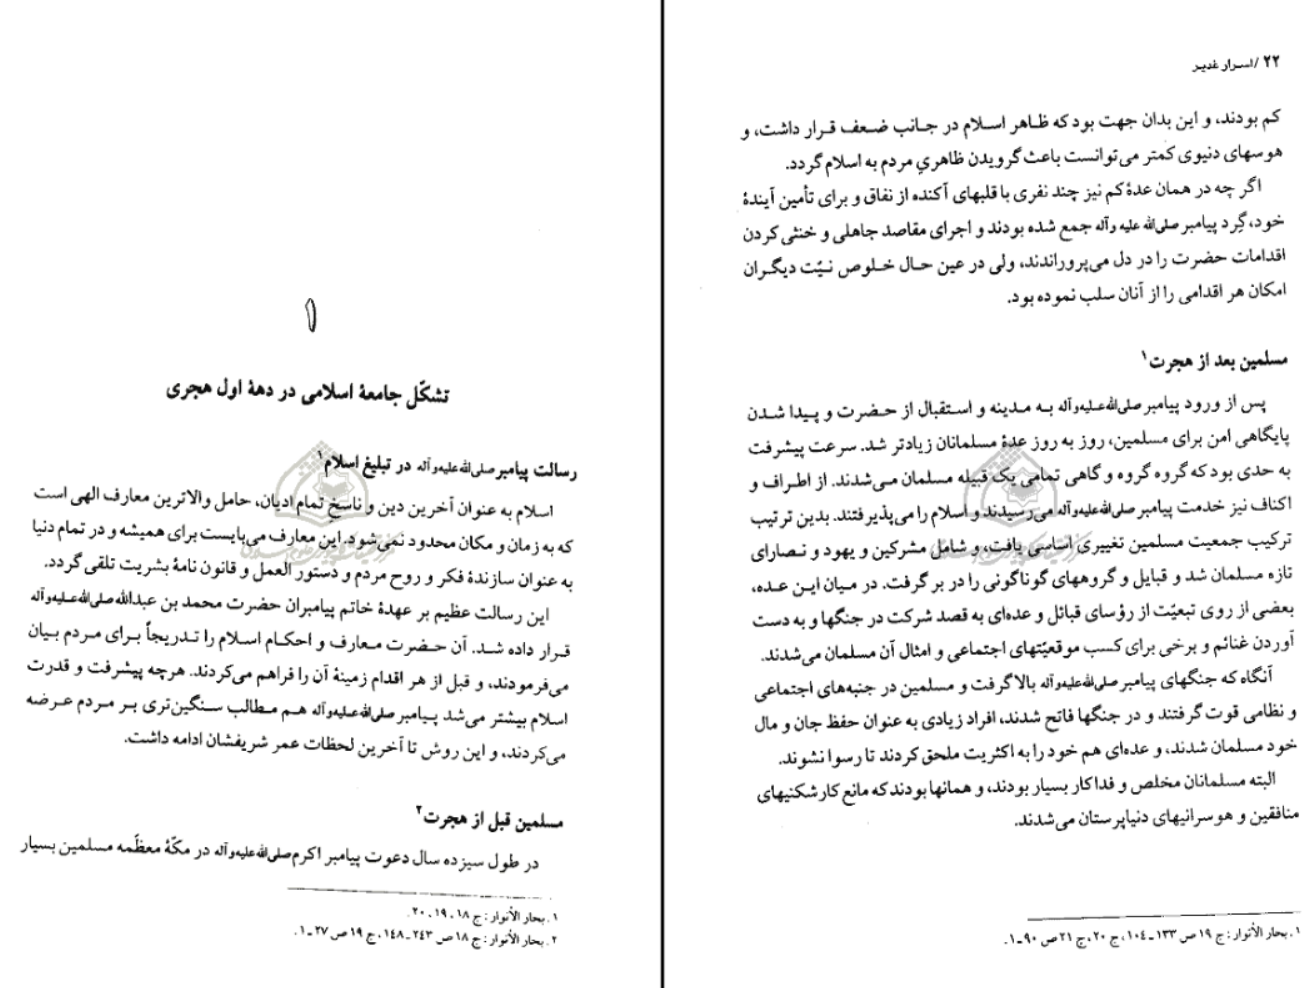 ۱
تشکّل جامعهٔ اسلامی در دههٔ اول هجری
رسالت پیامبر صلی‌الله‌علیه‌وآله در تبلیغ اسلام۱
اسلام به عنوان آخرین دین و ناسخِ تمام ادیان، حامل والاترین معارف الهی است
که به زمان و مکان محدود نمی‌شود. این معارف می‌بایست برای همیشه و در تمام دنیا
به عنوان سازندهٔ فکر و روح مردم و دستور العمل و قانون نامهٔ بشریت تلقی گردد.
این رسالت عظیم بر عهدهٔ خاتم پیامبران حضرت محمد بن عبدالله صلی‌الله‌علیه‌وآله
قرار داده شد. آن حضرت معارف و احکام اسلام را تدریجاً برای مردم بیان
می‌فرمودند، و قبل از هر اقدام زمینهٔ آن را فراهم می‌کردند. هرچه پیشرفت و قدرت
اسلام بیشتر می‌شد پیامبر صلی‌الله‌علیه‌وآله هم مطالب سنگین‌تری بر مردم عرضه
می‌کردند، و این روش تا آخرین لحظات عمر شریفشان ادامه داشت.
مسلمین قبل از هجرت۲
در طول سیزده سال دعوت پیامبر اکرم صلی‌الله‌علیه‌وآله در مکّهٔ معظّمه مسلمین بسیار
۱. بحار الأنوار: ج ۱۸، ۱۹، ۲۰.
۲. بحار الأنوار: ج ۱۸ ص ۲۴۳ـ۱۴۸، ج ۱۹ ص ۲۷ـ۱.
۲۲ / اسرار غدیر
کم بودند، و این بدان جهت بود که ظاهر اسلام در جانب ضعف قرار داشت، و
هوسهای دنیوی کمتر می‌توانست باعث گرویدن ظاهریِ مردم به اسلام گردد.
اگر چه در همان عدهٔ کم نیز چند نفری با قلبهای آکنده از نفاق و برای تأمین آیندهٔ
خود، گِرد پیامبر صلی‌الله علیه وآله جمع شده بودند و اجرای مقاصد جاهلی و خنثی کردن
اقدامات حضرت را در دل می‌پروراندند، ولی در عین حال خلوص نیّت دیگران
امکان هر اقدامی را از آنان سلب نموده بود.
مسلمین بعد از هجرت۱
پس از ورود پیامبر صلی‌الله‌علیه‌وآله به مدینه و استقبال از حضرت و پیدا شدن
پایگاهی امن برای مسلمین، روز به روز عدهٔ مسلمانان زیادتر شد. سرعت پیشرفت
به حدی بود که گروه گروه و گاهی تمامی یک قبیله مسلمان می‌شدند. از اطراف و
اکناف نیز خدمت پیامبر صلی‌الله‌علیه‌وآله می‌رسیدند و اسلام را می‌پذیرفتند. بدین ترتیب
ترکیب جمعیت مسلمین تغییری اساسی یافت، و شامل مشرکین و یهود و نصارای
تازه مسلمان شد و قبایل و گروههای گوناگونی را در بر گرفت. در میان این عده،
بعضی از روی تبعیّت از رؤسای قبائل و عده‌ای به قصد شرکت در جنگها و به دست
آوردن غنائم و برخی برای کسب موقعیّتهای اجتماعی و امثال آن مسلمان می‌شدند.
آنگاه که جنگهای پیامبر صلی‌الله‌علیه‌وآله بالا گرفت و مسلمین در جنبه‌های اجتماعی
و نظامی قوت گرفتند و در جنگها فاتح شدند، افراد زیادی به عنوان حفظ جان و مال
خود مسلمان شدند، و عده‌ای هم خود را به اکثریت ملحق کردند تا رسوا نشوند.
البته مسلمانان مخلص و فداکار بسیار بودند، و همانها بودند که مانع کارشکنیهای
منافقین و هوسرانیهای دنیاپرستان می‌شدند.
۱. بحار الأنوار: ج ۱۹ ص ۱۳۳ـ۱۰۴، ج ۲۰، ج ۲۱ ص ۹۰ـ۱.